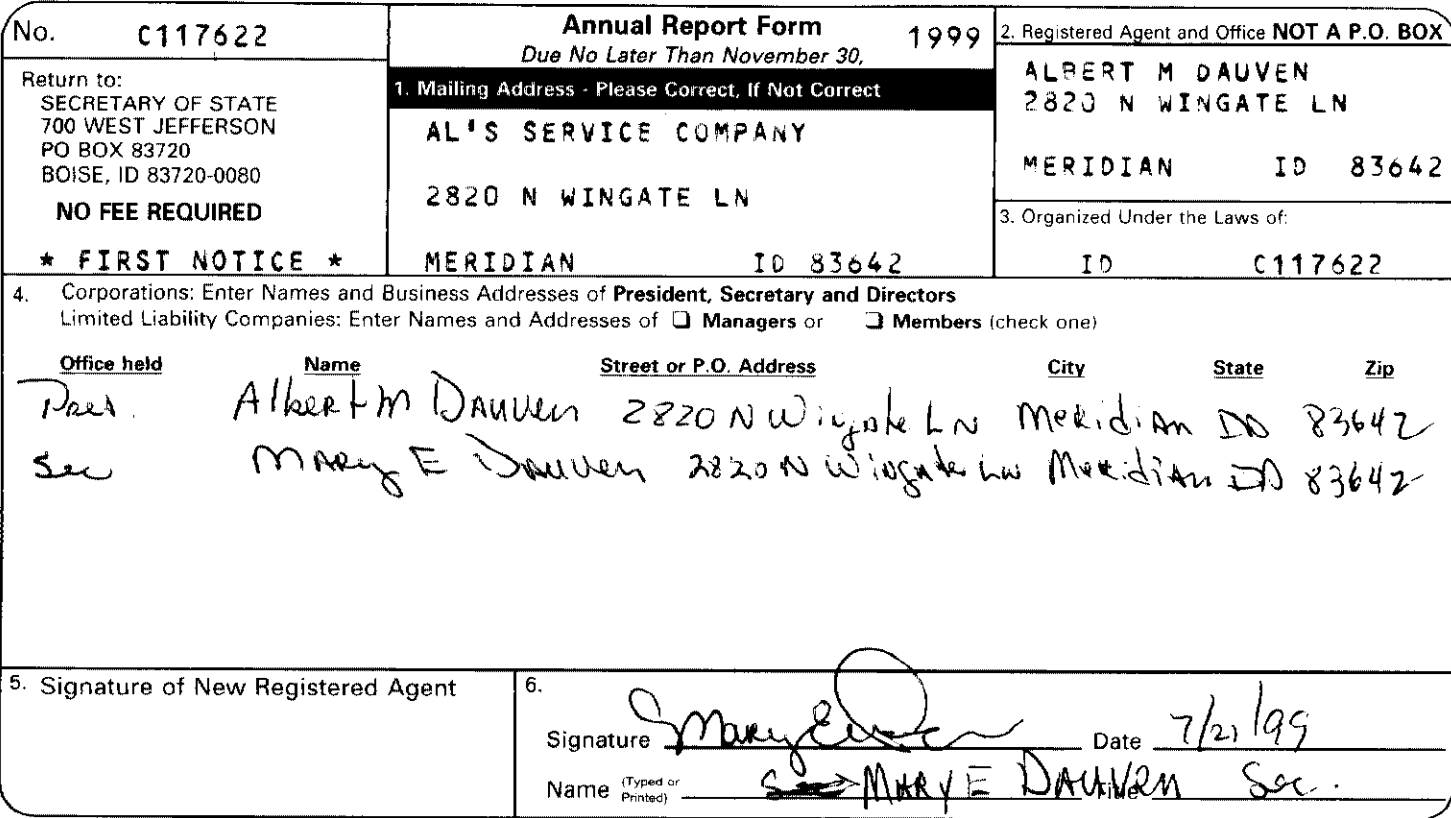 No. C117622
Return to:
SECRETARY OF STATE
700 WEST JEFFERSON
PO BOX 83720
BOISE, ID 83720-0080
NO FEE REQUIRED
* FIRST NOTICE *
Annual Report Form 1999
Due No Later Than November 30,
1. Mailing Address - Please Correct, If Not Correct
AL'S SERVICE COMPANY
2820 N WINGATE LN
MERIDIAN ID 83642
2. Registered Agent and Office NOT A P.O. BOX
ALBERT M DAUVEN
2820 N WINGATE LN
MERIDIAN ID 83642
3. Organized Under the Laws of:
ID C117622
4. Corporations: Enter Names and Business Addresses of President, Secretary and Directors
Limited Liability Companies: Enter Names and Addresses of ❑ Managers or ❑ Members (check one)
Office held Name Street or P.O. Address City State Zip
Pres. Albert M Dauven 2820 N Wingate LN Meridian ID 83642
Sec Mary E Dauven 2820 N Wingate LN Meridian ID 83642
5. Signature of New Registered Agent
6.
Signature Mary E Date 7/21/99
Name (Typed or Printed) MARY E DAUVEN Sec.